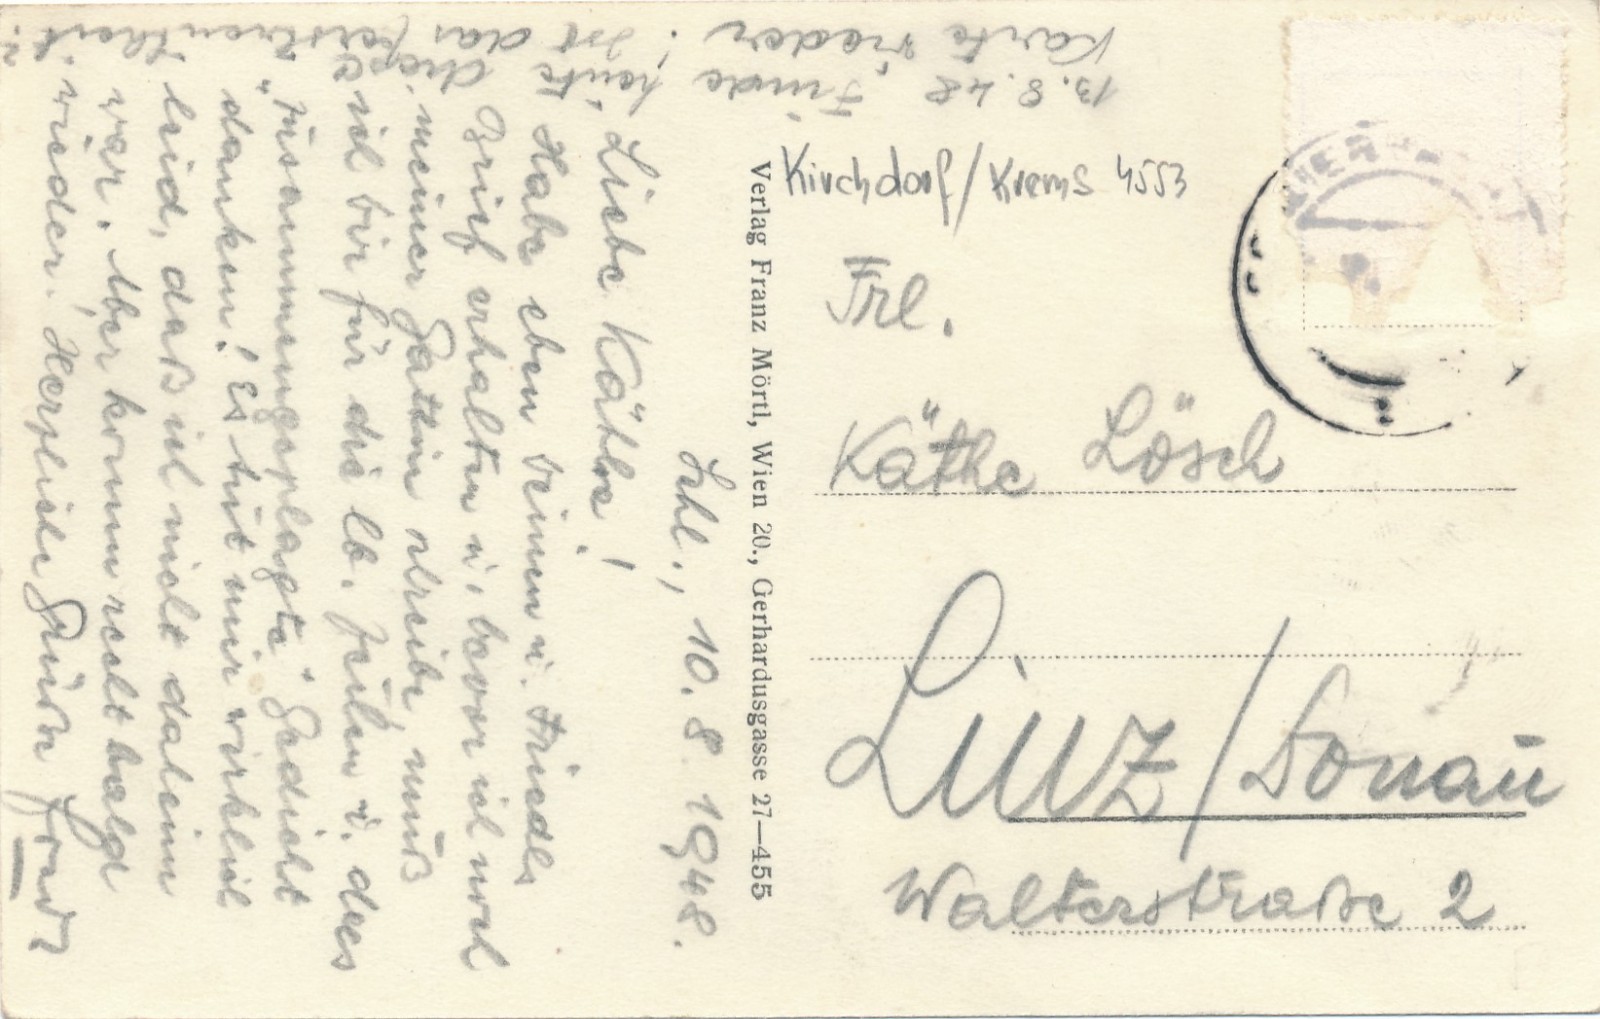 Kirchdorf/Krems 4553
Frl.
Käthe Lösch
Linz/Donau
Walterstraße 2
Verlag Franz Mörtl, Wien 20., Gerhardusgasse 27—455
10. 8. 1948.
Liebe Käthe!
Habe eben deinen u. Friedls
Brief erhalten u. bevor ich noch
meiner Gattin schreibe, muß
ich dir für die lb. Zeilen u. das
"zusammengeplagte" Gedicht
danken! Es tut mir wirklich
leid, daß ich nicht daheim
war. Aber komm recht bald
wieder! Herzliche Grüße
13.8.48 Finde heute die
Karte wieder! Ist das